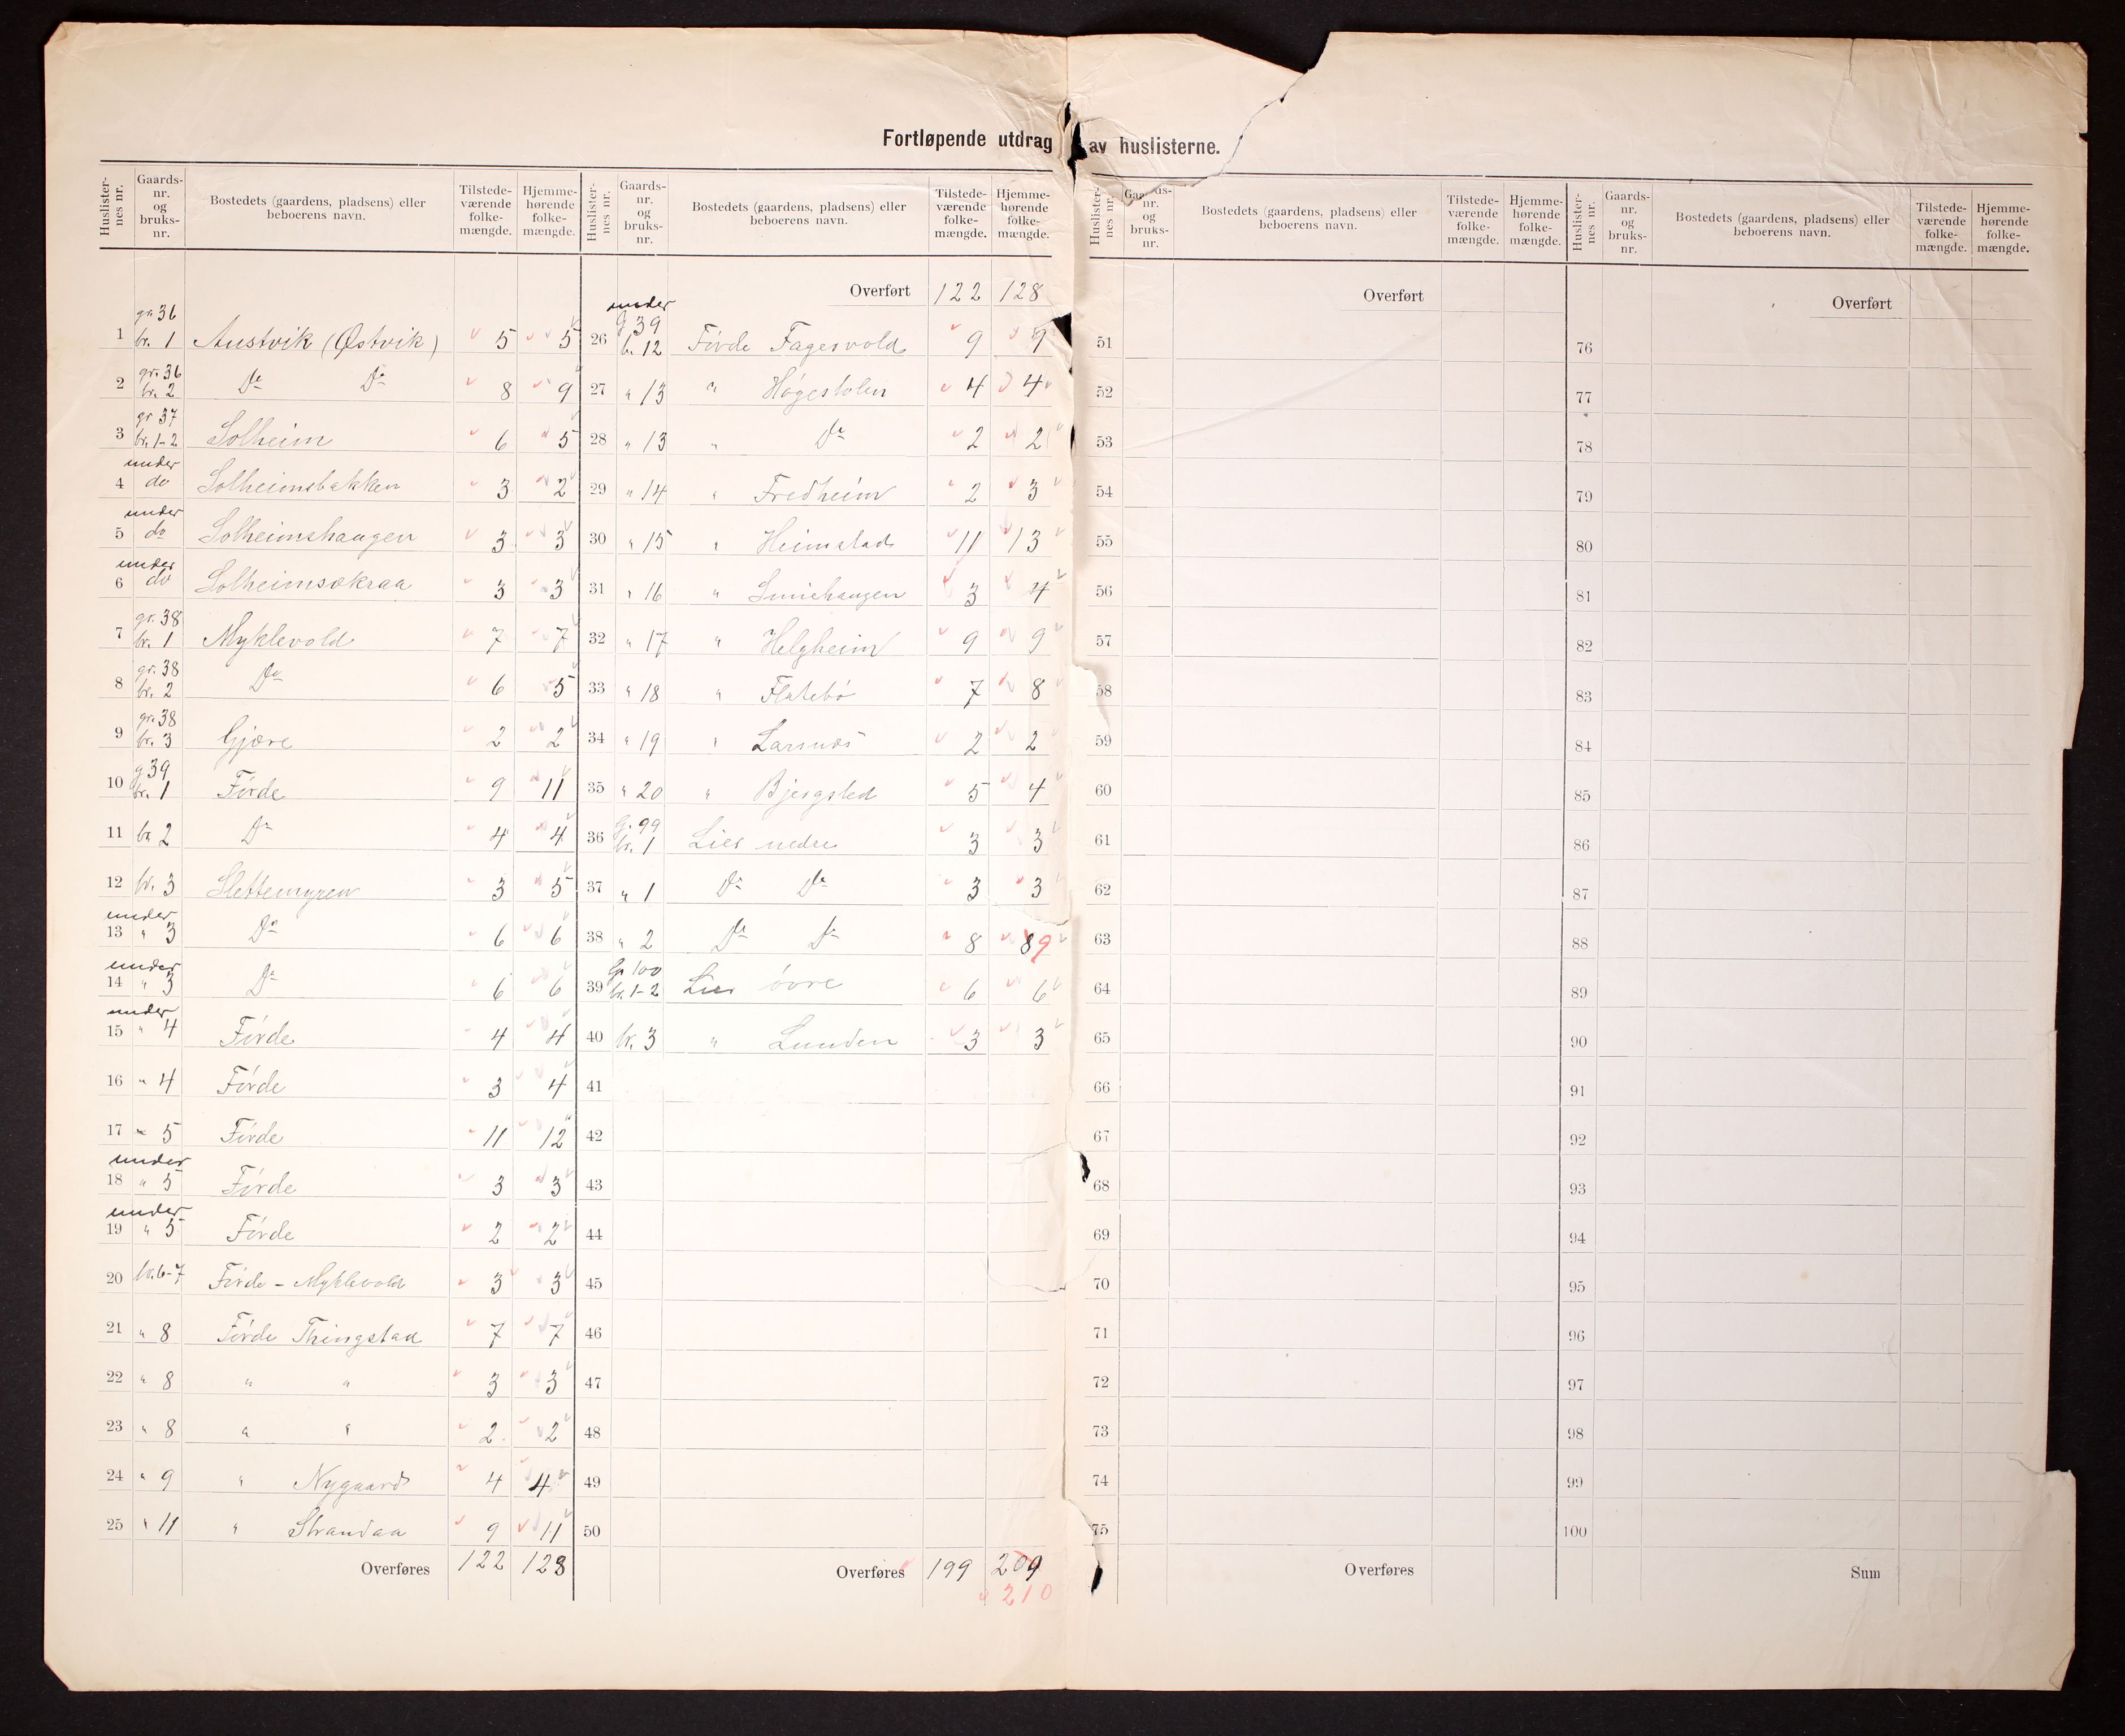 Fortløpende utdrag av huslisterne.
Huslisternes nr. | Gaards-nr. og bruks-nr. | Bostedets (gaardens, pladsens) eller beboerens navn. | Tilstedeværende folkemængde. | Hjemmehørende folkemængde.
1 gr. 36 br. 1 Austvik (Østvik) 5 5
2 gr. 36 br. 2 Do Do 8 9
3 gr 37 br. 1-2 Solheim 6 5
4 under do Solheimsbakken 3 2
5 under do Solheimshaugen 3 3
6 under do Solheimsøkraa 3 3
7 gr. 38 br. 1 Myklevold 7 7
8 gr. 38 br. 2 Do 6 5
9 gr. 38 br. 3 Gjøre 2 2
10 g 39 br. 1 Førde 9 11
11 br 2 Do 4 4
12 br. 3 Slettemyren 3 5
13 under " 3 Do 6 6
14 under " 3 Do 6 6
15 under " 4 Førde 4 4
16 " 4 Førde 3 4
17 " 5 Førde 11 12
18 under " 5 Førde 3 3
19 under " 5 Førde 2 2
20 br. 6-7 Førde - Myklevold 3 3
21 " 8 Førde Thingstad 7 7
22 " 8 " " 3 3
23 " 8 " " 2 2
24 " 9 " Nygaard 4 4
25 " 11 " Strandaa 9 11
Overføres 122 128
Huslisternes nr. | Gaards-nr. og bruks-nr. | Bostedets (gaardens, pladsens) eller beboerens navn. | Tilstedeværende folkemængde. | Hjemmehørende folkemængde.
Overført 122 128
26 under g 39 b. 12 Førde Fagervold 9 9
27 " 13 " Høgestolen 4 4
28 " 13 " Do 2 2
29 " 14 " Fredheim 2 3
30 " 15 " Heimstad 11 13
31 " 16 " Smiehaugen 3 4
32 " 17 " Helgheim 9 9
33 " 18 " Flatebø 7 8
34 " 19 " Larsnes 2 2
35 " 20 " Bjergsted 5 4
36 G. 99 br. 1 Lier nedre 3 3
37 " 1 Do Do 3 3
38 " 2 Do Do 8 8 9
39 G 100 br. 1-2 Lier øvre 6 6
40 br. 3 " Lunden 3 3
41
42
43
44
45
46
47
48
49
50
Overføres 199 209
210
Huslisternes nr. | Gaards-nr. og bruks-nr. | Bostedets (gaardens, pladsens) eller beboerens navn. | Tilstedeværende folkemængde. | Hjemmehørende folkemængde.
Overført
51
52
53
54
55
56
57
58
59
60
61
62
63
64
65
66
67
68
69
70
71
72
73
74
75
Overføres
Huslisternes nr. | Gaards-nr. og bruks-nr. | Bostedets (gaardens, pladsens) eller beboerens navn. | Tilstedeværende folkemængde. | Hjemmehørende folkemængde.
Overført
76
77
78
79
80
81
82
83
84
85
86
87
88
89
90
91
92
93
94
95
96
97
98
99
100
Sum